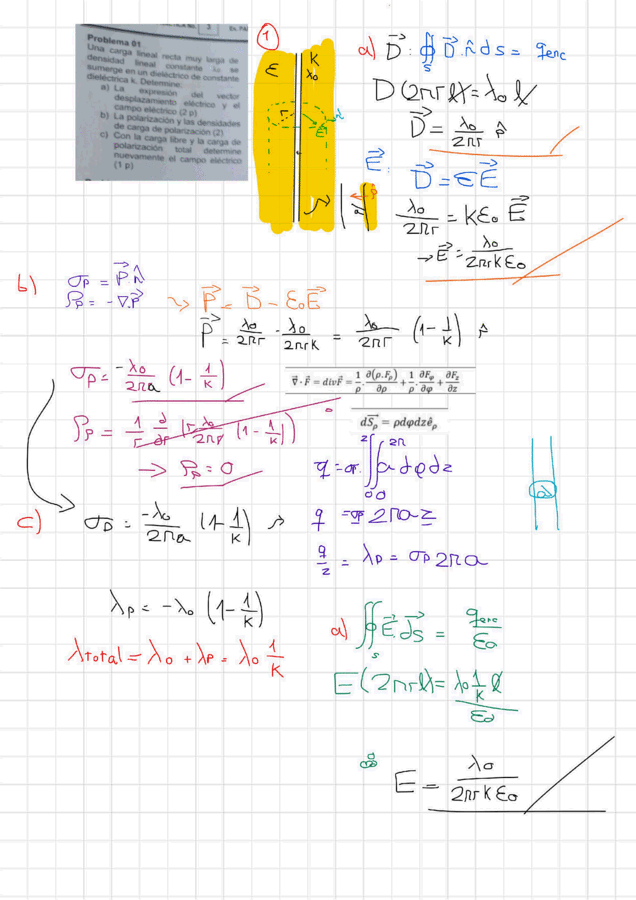 3
Problema 01
Una carga lineal recta muy larga de
densidad lineal constante λo se
sumerge en un dieléctrico de constante
dieléctrica k. Determine:
a) La expresión del vector
desplazamiento eléctrico y el
campo eléctrico (2 p)
b) La polarización y las densidades
de carga de polarización (2)
c) Con la carga libre y la carga de
polarización total determine
nuevamente el campo eléctrico
(1 p)
1
ε
K
λo
r
a) D⃗ : ∯_S D⃗.n̂ ds = q_enc
D(2πrℓ) = λo ℓ
D⃗ = λo/2πr ρ̂
E⃗ : D⃗ = εE⃗
λo/2πr = Kεo E⃗
→ E⃗ = λo/2πrKεo
b) σp = P⃗.n̂
ρp = -∇.P⃗
P⃗ = D⃗ - εoE⃗
P⃗ = λo/2πr - λo/2πrK = λo/2πr (1 - 1/K) ρ̂
σp = -λo/2πa (1 - 1/K)
∇⃗ · F⃗ = divF⃗ = 1/ρ . ∂(ρ.Fρ)/∂ρ + 1/ρ . ∂Fφ/∂φ + ∂Fz/∂z
dS⃗ρ = ρdφdzêρ
ρp = 1/r ∂/∂r (r λo/2πr (1 - 1/K))
→ ρp = 0
q = σp ∫₀^z ∫₀^2π a dφdz
c) σp = -λo/2πa (1 - 1/K)
q = σp 2πa z
q/z = λp = σp 2πa
λp = -λo (1 - 1/K)
λtotal = λo + λp = λo 1/K
a) ∯_S E⃗.ds⃗ = q_enc/εo
E(2πrℓ) = λo 1/K ℓ / εo
E = λo/2πrKεo